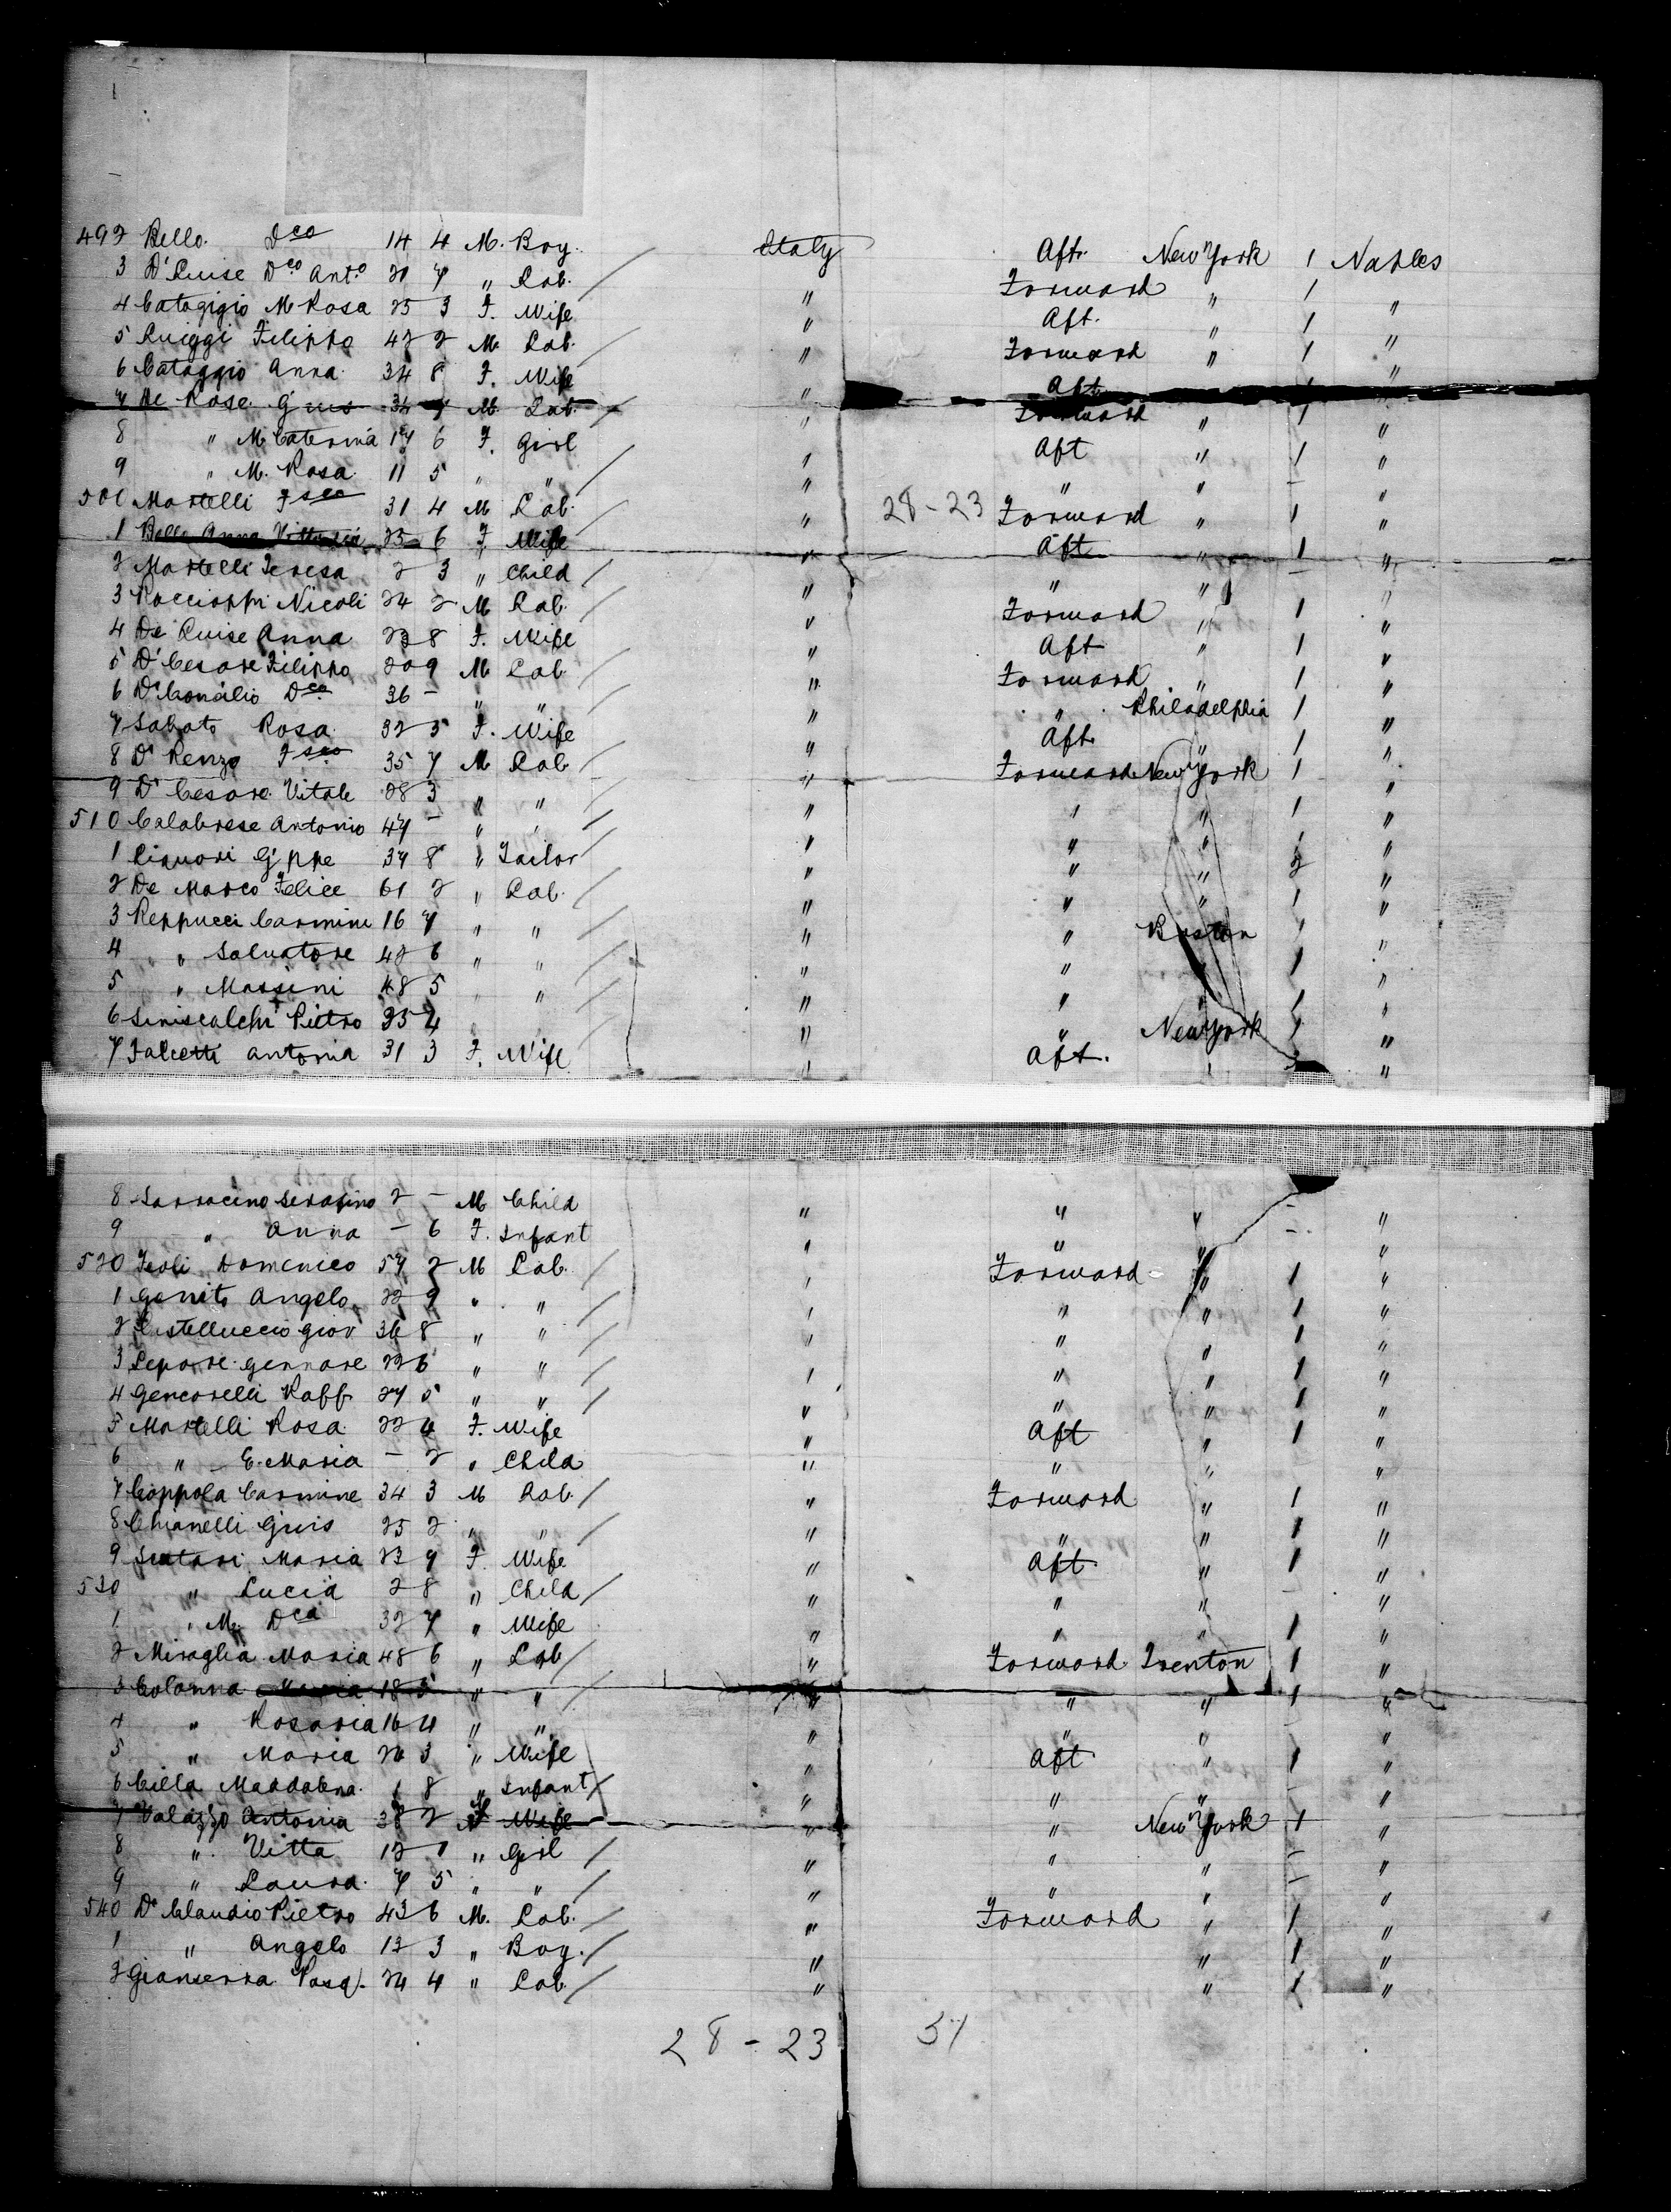 492 Bello. Dco 14 4 M. Boy. Italy Aft. New York 1 Naples
3 D' Luise Dco Anto 20 7 " Lab. " Forward " 1 "
4 Catagigio M Rosa 25 3 F. Wife " Aft. " 1 "
5 Luiggi Filippo 42 2 M. Lab. " Forward " 1 "
6 Cataggio Anna 34 8 F. Wife " Aft 1
7 De Rose Gius 34 7 M. Lab. " Forward " 1 "
8 " M Caterina 17 6 F. Girl " Aft " 1 "
9 " M. Rosa 11 5 " " " " " – "
500 Martelli Fsco 31 4 M Lab. " 28-23 Forward " 1 "
1 Bello Anna Vittoria 23 6 F Wife " Aft " 1 "
2 Martelli Teresa 2 3 " Child " " " – "
3 Roccioppi Nicoli 24 2 M Lab. " Forward " 1 "
4 De Luise Anna 23 8 F. Wife " Aft " 1 "
5 D' Cesare Filippo 20 9 M Lab. " Forward " 1 "
6 D' Concilio Dco 36 – " " " " Philadelphia 1 "
7 Sabato Rosa 32 5 F. Wife " Aft " 1 "
8 D' Renzo Fsco 35 7 M Lab " Forward New York 1 "
9 D' Cesare Vitale 28 3 " " " " " 1 "
510 Calabrese Antonio 47 – " " " " " 1 "
1 Liquori G'ppe 37 8 " Tailor " " " 2 "
2 De Marco Felice 61 2 " Lab. " " " 1 "
3 Reppucci Carmine 16 7 " " " " Boston 1 "
4 " Salvatore 42 6 " " " " 1 "
5 " Massini 48 5 " " " " " 1 "
6 Siniscalchi Pietro 35 4 " " New York 1 "
7 Falcetti Antonia 31 3 F. Wife " Aft. " "
8 Sarracino Serafino 2 – M Child " " " – "
9 " Anna – 6 F. Infant " " " – "
520 Feoli Domenico 57 2 M Lab. " Forward " 1 "
1 Genito Angelo 22 9 " " " " " 1 "
2 Castelluccio Giov 36 8 " " " " " 1 "
3 Lepore Gennare 22 6 " " " " " 1 "
4 Gencorelli Raff. 27 5 " " " " " 1 "
5 Martelli Rosa 22 4 F. Wife " Aft " 1 "
6 " E. Maria – 2 " Child " " " "
7 Coppola Carmine 34 3 M Lab. " Forward " 1 "
8 Chianelli Gius 25 2 " " " " " 1 "
9 Scutari Maria 23 9 F. Wife " Aft. " 1 "
530 " Lucia 2 8 " Child " " " – "
1 " M. Dca 32 7 " Wife " " " 1 "
2 Miraglia Maria 48 6 " Lab " Forward Trenton 1 "
3 Colanna Maria 18 5 " " " " " 1 "
4 " Rosaria 16 4 " " " " " "
5 " Maria 26 3 " Wife " Aft " 1 "
6 Cilla Maddalena 1 8 " Infant " " " – "
7 Valazzo Antonia 38 2 F Wife " " New York 1 "
8 " Vitta 12 1 " Girl " " " – "
9 " Laura 7 5 " " " " " – "
540 D' Claudio Pietro 43 6 M. Lab. " Forward " 1 "
1 " Angelo 13 3 " Boy. " " 1 "
2 Gianserra Pasq. 24 4 " Lab. " " 1 "
28 - 23 51